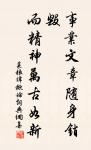 事業文章隨身銷
毀
而精神萬古如新